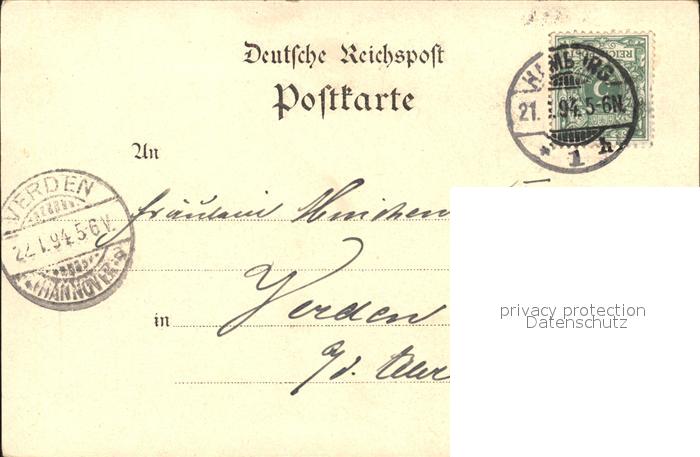 Deutsche Reichspost
Postkarte
HAMBURG
21. 1. 94. 5-6N.
* 1 h.
An
Fräulein
VERDEN
22.1.94.5-6V.
(HANNOVER)
in Verden
a/d. Aller
privacy protection
Datenschutz